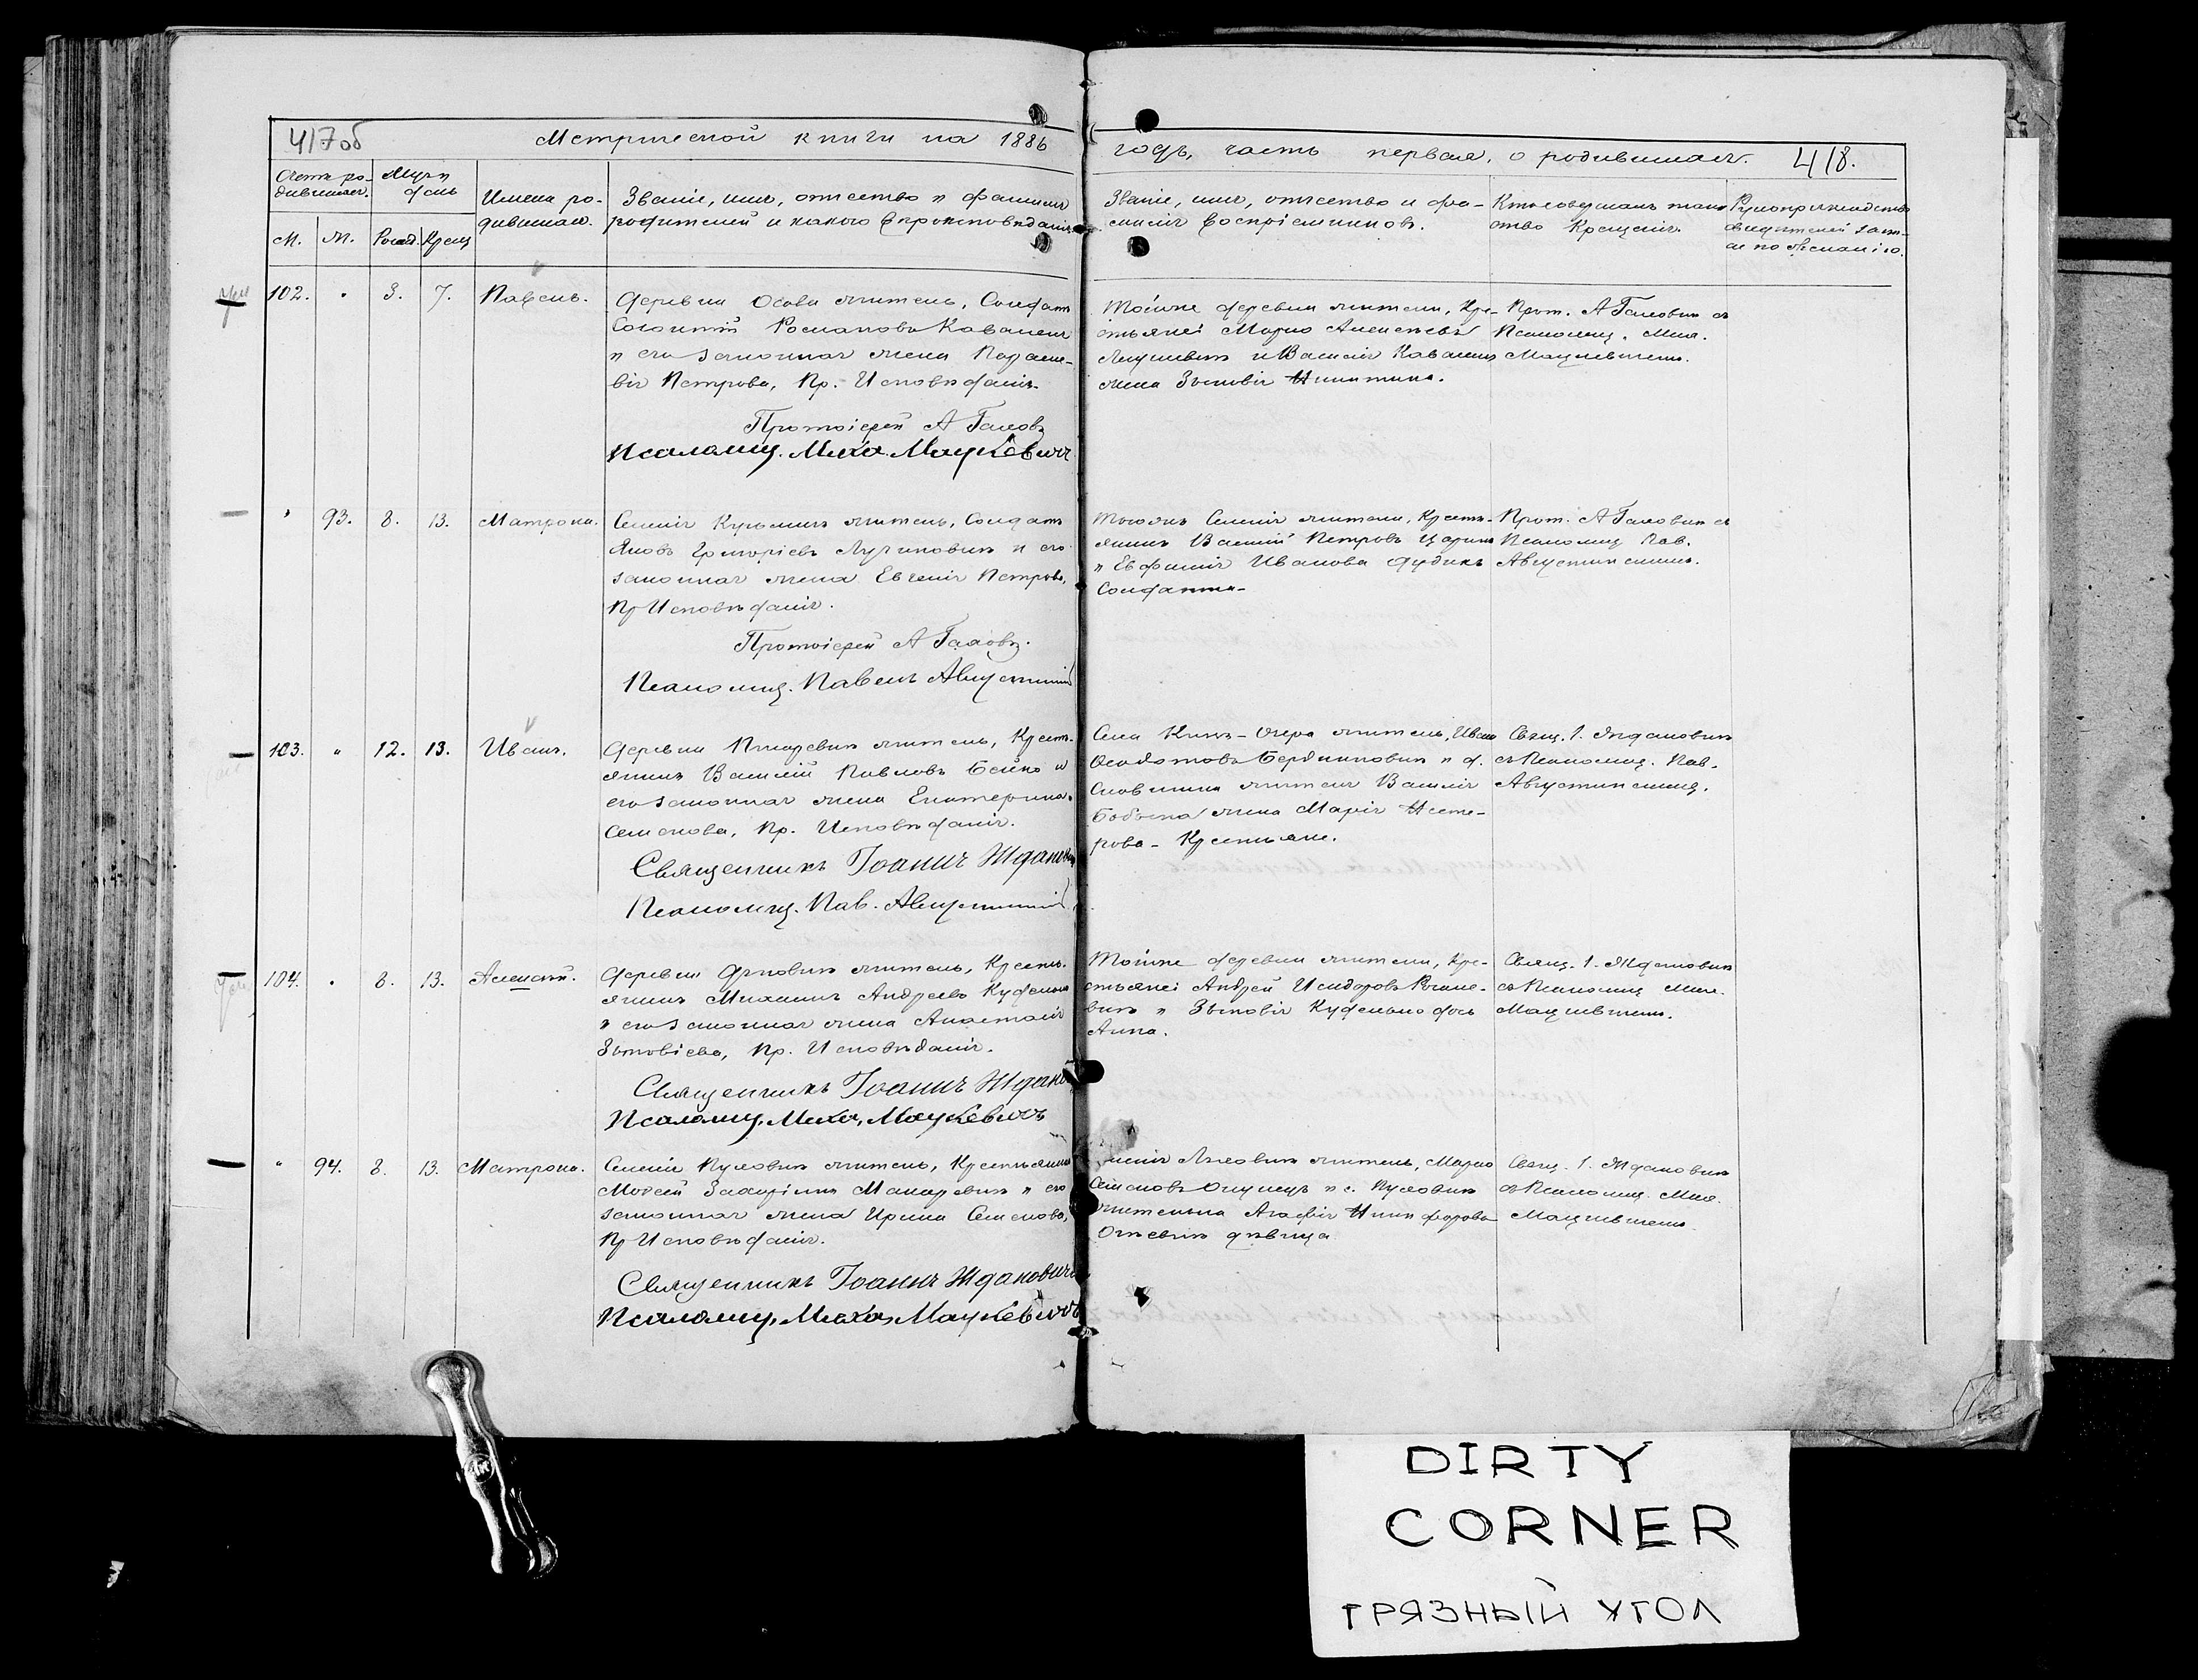 417об
Метрической книги на 1886
годъ, часть первая, о родившихся.
418.
Счетъ ро-
дившихся.
М.
Ж.
Мѣсяцъ и
день
Рожд.
Крещ
Имена ро-
дившихся.
Званіе, имя, отчество и фамилія
родителей и какого вѣроисповѣданія
Званіе, имя, отчество и фа-
милія воспріемниковъ.
Кто совершалъ таин
ство Крещенія.
Рукоприкладство
свидѣтелей запи-
си по желанію.
102.
3.
7.
Павелъ.
Деревни Осова житель, Солдатъ
Романовъ Ковалевъ
и его законная жена Параске-
вія Петрова, Пр. Исповѣданія.
Протоіерей А Галовъ
Псаломщ. Миха. Мацкевичъ
Тойже деревни жители, Кре-
стьяне: Марко Алексѣевъ
и Василія Ковалева
жена Зѣновія Никитина.
Прот. А Галовъ съ
Псаломщ. Мих.
Мацкевичемъ.
93.
8.
13.
Матрона.
Селенія Кузьмичъ житель, Солдатъ
Яковъ Григорьевъ Лугиновичъ и его
законная жена Евгенія Петрова,
Пр Исповѣданія.
Протоіерей А Галовъ.
Псаломщ. Павелъ Августинскій
Тогожъ Селенія жители, Кресть-
янинъ Василій Петровъ Царикъ
и Евфимія Иванова Дудикъ
Солдатка.
Прот. А Галовъ съ
Псаломщ Пав.
Августинскимъ.
103.
"
12.
13.
Иванъ.
Деревни житель, Кресть-
янинъ Василій Павловъ Бейко и
его законная жена Екатерина
Семенова, Пр. Исповѣданія.
Священникъ Іоаннъ Ждановичъ
Псаломщ. Пав. Августинскій
Села Князь-Озера житель, Иванъ
Ѳеодотовъ Бердниковичъ и д.
житель Василія
жена Марія Несте-
рова - Крестьяне.
Свящ. І. Ждановичъ
съ Псаломщ. Пав.
Августинскимъ.
104.
8.
13.
Алексѣй.
Деревни житель, Кресть-
янинъ Михаилъ Андреевъ
и его законная жена Анастасія
Зѣновіева, Пр. Исповѣданія.
Священникъ Іоаннъ Ждановичъ
Псаломщ. Миха. Мацкевичъ
Тойже деревни жители, Кре-
стьяне: Андрей Исидоровъ
и Зѣновія дочь
Анна.
Свящ. І. Ждановичъ
съ Псаломщ Мих.
Мацкевичемъ.
"
94.
8.
13.
Матрона.
Селенія Пуховичъ житель, Крестьянинъ
Моѵсей Захаріинъ Макаревичъ и его
законная жена Ирина Семенова,
Пр Исповѣданія.
Священникъ Іоаннъ Ждановичъ
Псаломщ. Миха. Мацкевичъ
Селенія Ляховичъ житель, Марко
Семеновъ и с. Пуховичъ
жительница Агафія Никифорова
дѣвица
Свящ. І. Ждановичъ
съ Псаломщ. Мих.
Мацкевичемъ.
DIRTY
CORNER
ГРЯЗНЫЙ УГОЛ